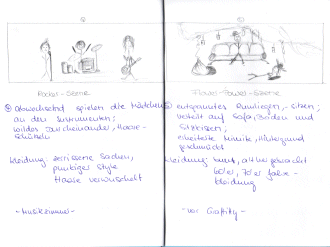 Rocker-Szene
abwechselnd spielen die Mädchen
an den Instrumenten;
wildes Durcheinander, Haare-
schütteln
Kleidung: zerrissene Sachen,
punkiger Style
Haare verwuschelt
-Musikzimmer-
Flower-Power-Szene
entspanntes Rumliegen, -sitzen;
verteilt auf Sofa, Boden und
Sitzkissen;
Hintergrund
geschmückt
Kleidung: bunt, altbacken
60er, 70er Jahre-
Kleidung
-vor Graffity-